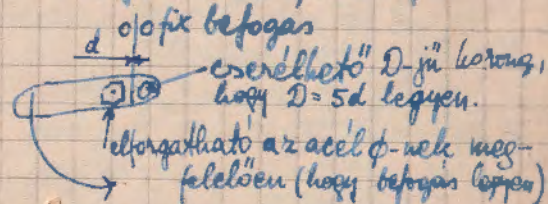 fix befogás
d
cserélhető D-jű korong,
hogy D = 5d legyen.
elforgatható az acél ϕ-nek meg-
felelően (hogy befogás legyen)